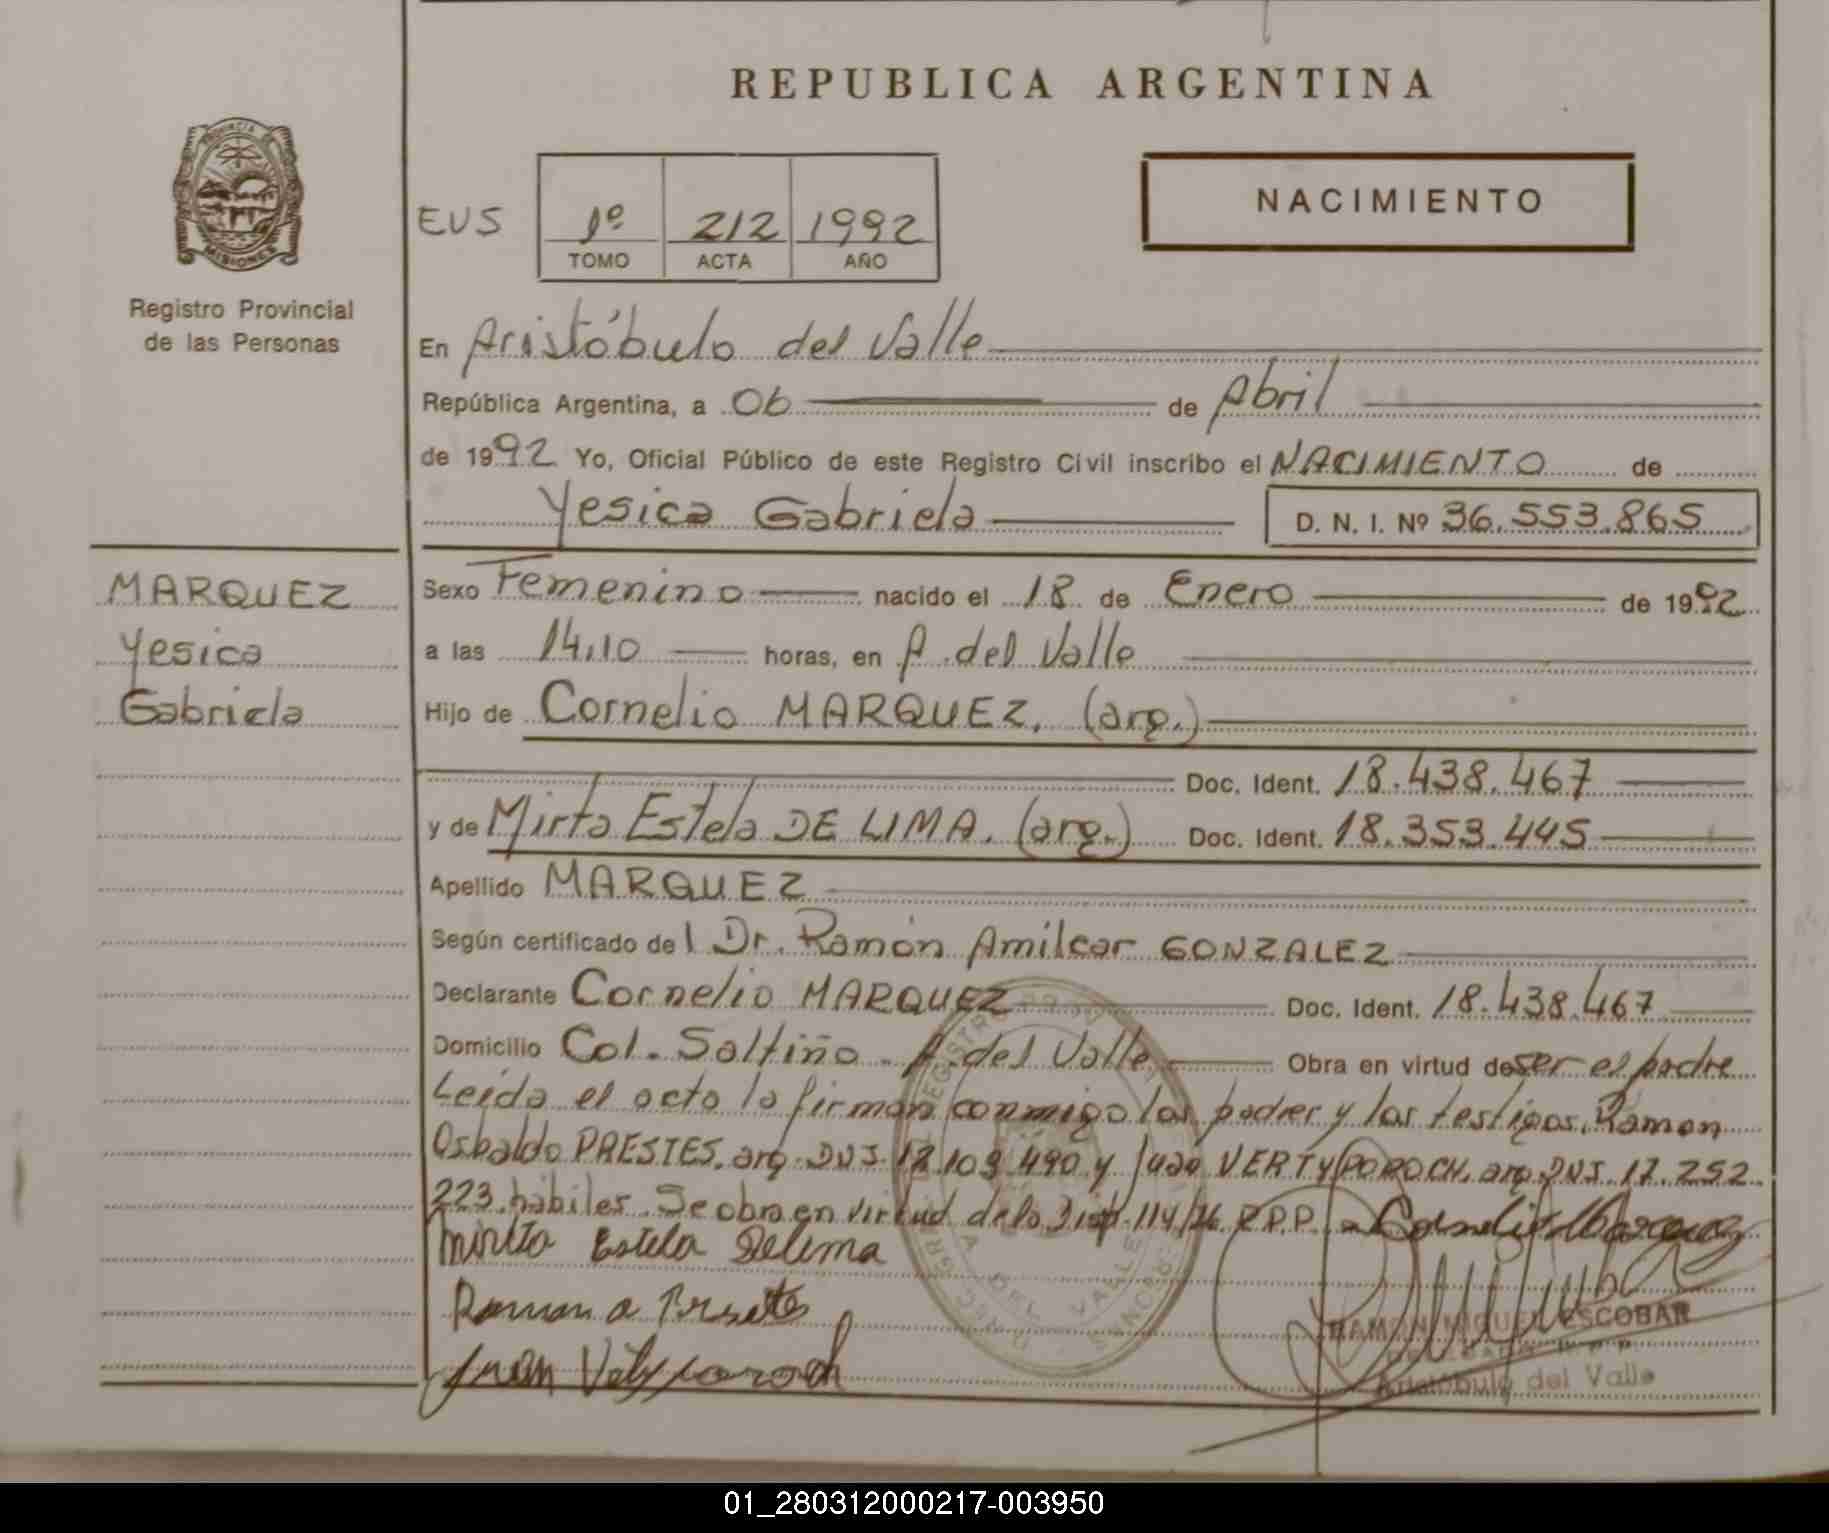 REPUBLICA ARGENTINA
PROVINCIA DE
MISIONES
Registro Provincial
de las Personas
EUS
1º 212 1992
TOMO ACTA AÑO
NACIMIENTO
En Aristóbulo del Valle
República Argentina, a 06 de Abril
de 1992 Yo, Oficial Público de este Registro Civil inscribo el NACIMIENTO de
Yesica Gabriela D. N. I. Nº 36.553.865
MARQUEZ
Yesica
Gabriela
Sexo Femenino nacido el 18 de Enero de 1992
a las 14,10 horas, en A. del Valle
Hijo de Cornelio MARQUEZ. (arg.)
Doc. Ident. 18.438.467
y de Mirta Estela DE LIMA. (arg.) Doc. Ident. 18.353.445
Apellido MARQUEZ
Según certificado del Dr. Ramón Amilcar GONZALEZ
Declarante Cornelio MARQUEZ Doc. Ident. 18.438.467
Domicilio Col. Saltiño - A. del Valle Obra en virtud de ser el padre
Leída el acta la firman conmigo los padres y los testigos. Ramon
Osbaldo PRESTES. arg. DNI. 12.109.490 y Juan VERTYPOROCH. arg. DNI. 17.252.
223. hábiles. Se obra en virtud de la Disp. 114/86 R.P.P.
Mirta Estela Delima
Ramon O Prestes
Juan
RAMON MIGUEL ESCOBAR
Aristóbulo del Valle
01_280312000217-003950